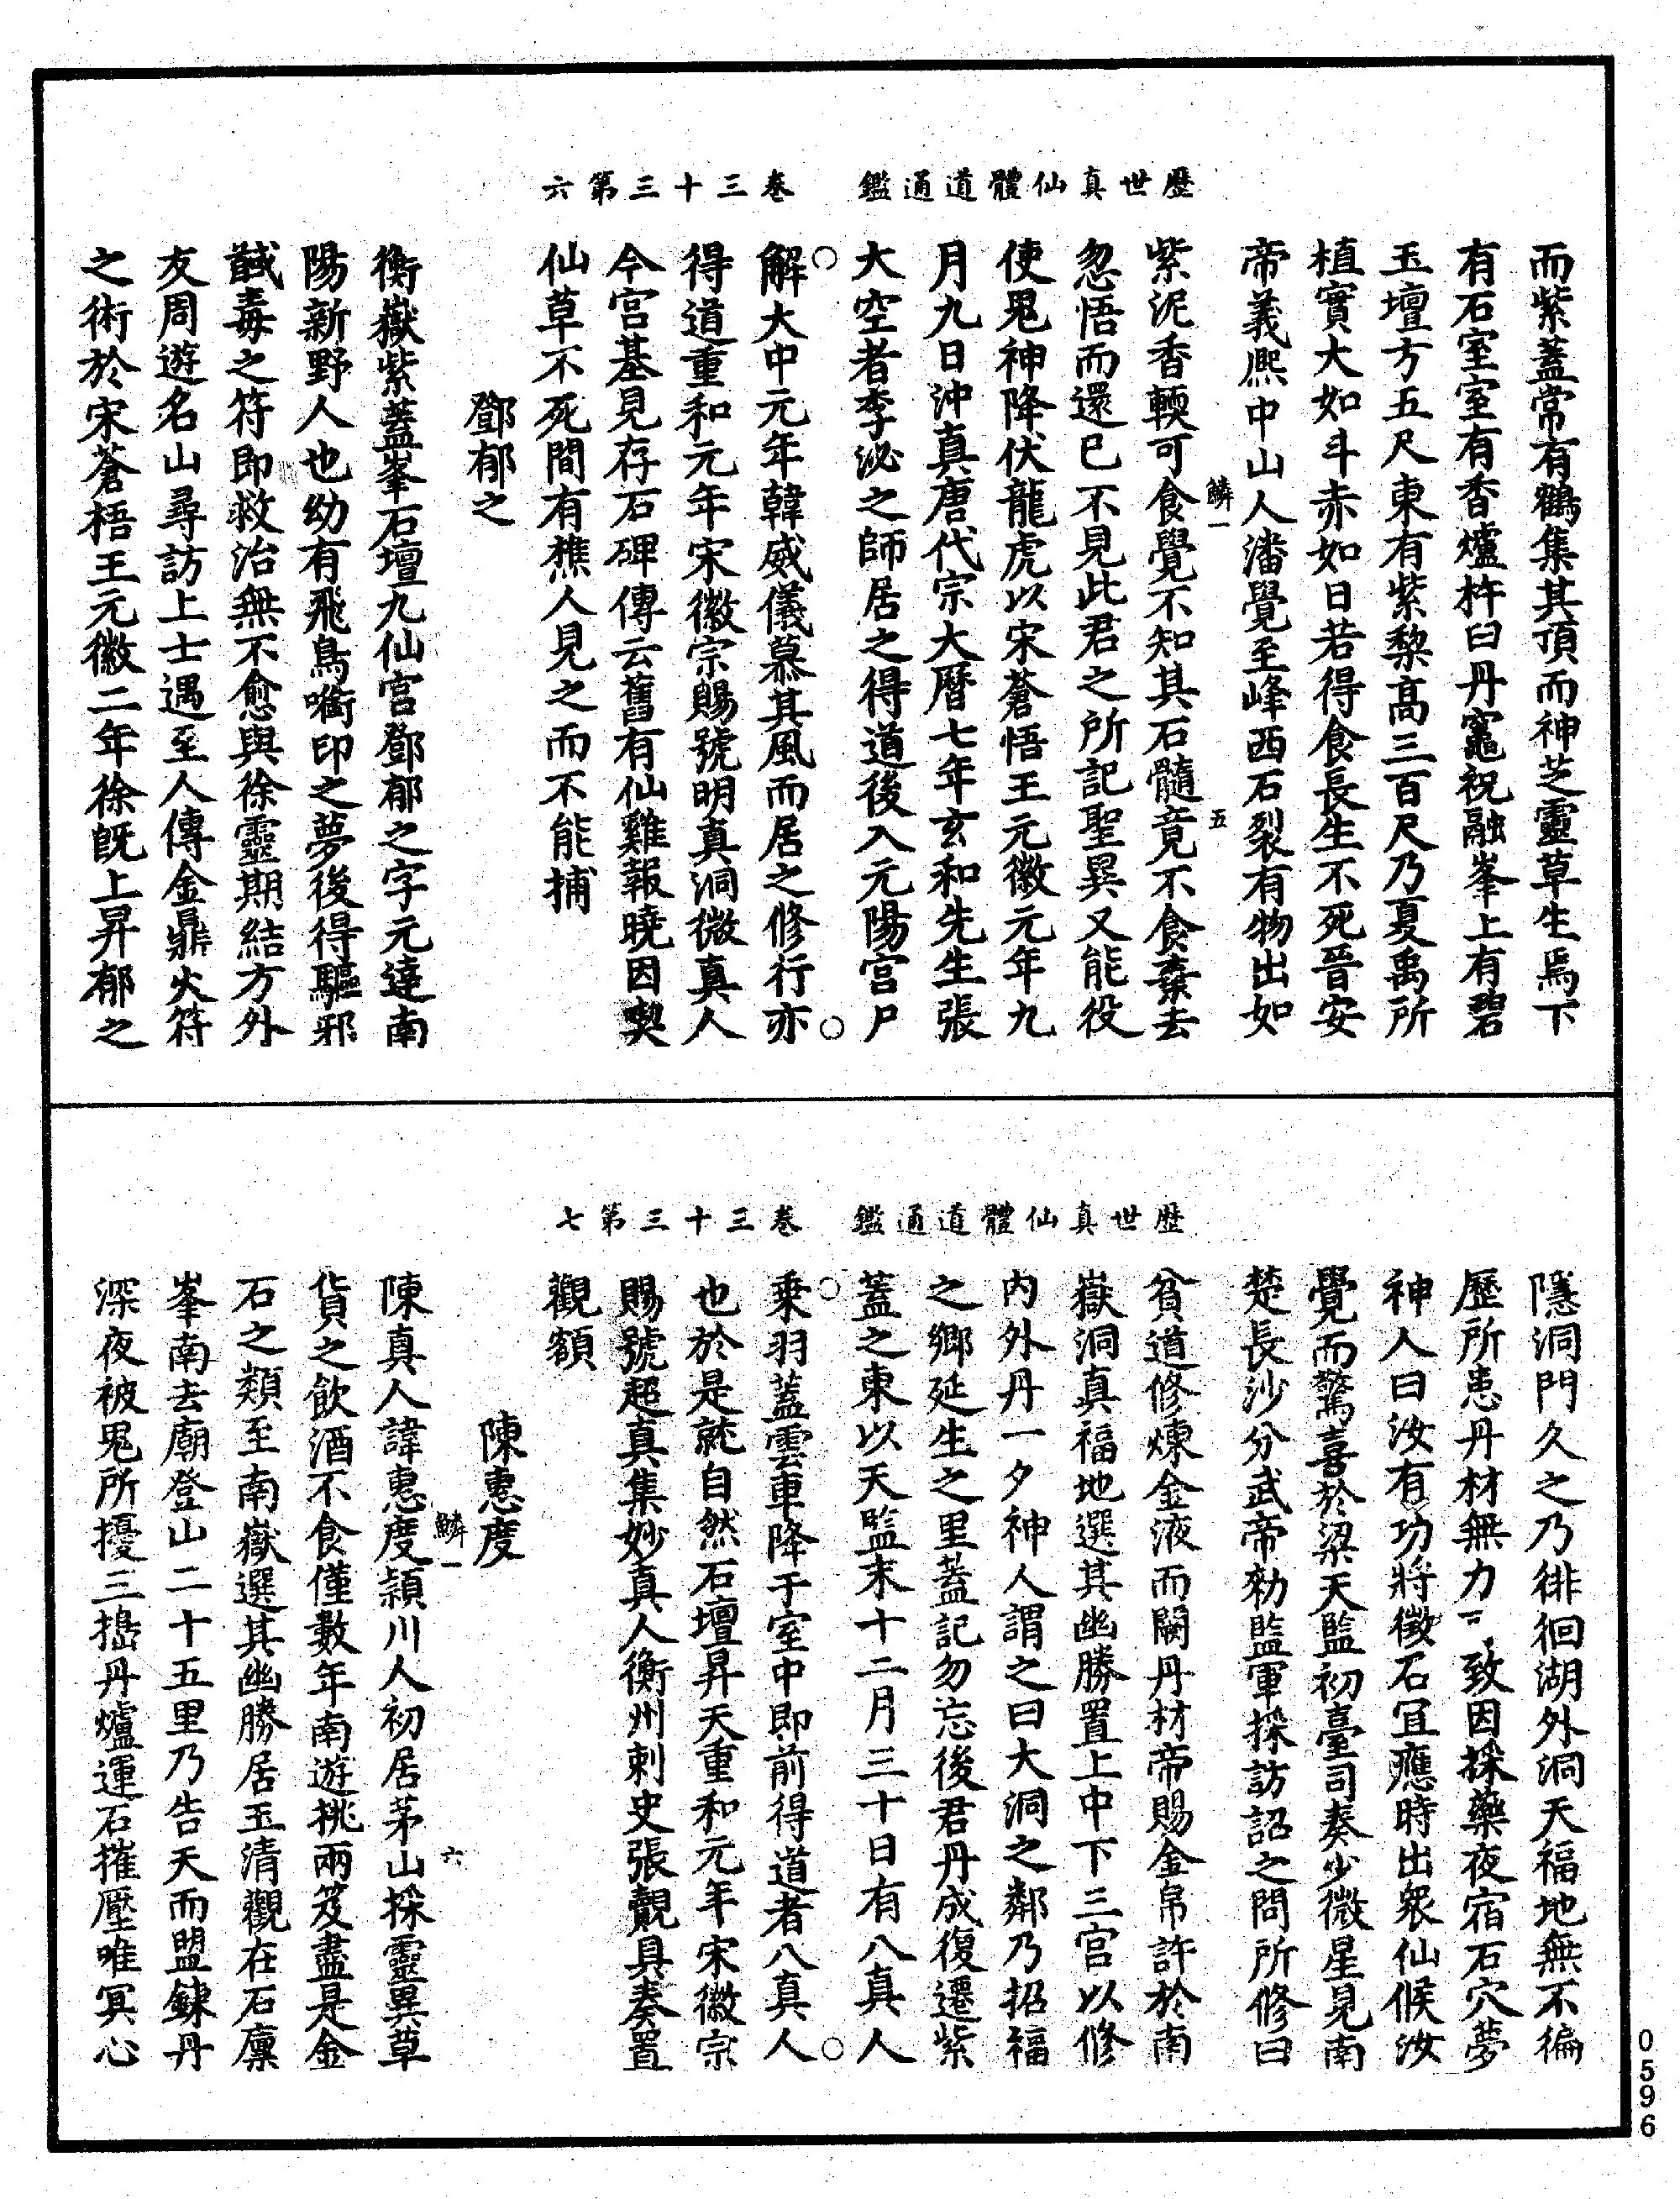 歷世真仙體道通鑑　卷三十三第六
而紫蓋常有鶴集其頂而神芝靈草生焉下
有石室室有香爐杵臼丹竈祝融峯上有碧
玉壇方五尺東有紫棃高三百尺乃夏禹所
植實大如斗赤如日若得食長生不死晉安
帝義熈中山人潘覺至峰西石裂有物出如
鱗一
五
紫泥香輭可食覺不知其石髓竟不食棄去
忽悟而還已不見此君之所記聖異又能役
使鬼神降伏龍虎以宋蒼悟王元徽元年九
月九日沖真唐代宗大曆七年玄和先生張
大空者李泌之師居之得道後入元陽宮尸
○解大中元年韓威儀慕其風而居之修行亦○
得道重和元年宋徽宗賜號明真洞微真人
今宮基見存石碑傳云舊有仙雞報曉因喫
仙草不死間有樵人見之而不能捕
鄧郁之
衡嶽紫蓋峯石壇九仙宮鄧郁之字元達南
陽新野人也幼有飛鳥嘞印之夢後得驅邪
馘毒之符即救治無不愈與徐靈期結方外
友周遊名山尋訪上士遇至人傳金鼎火符
之術於宋蒼梧王元徽二年徐旣上昇郁之
歷世真仙體道通鑑　卷三十三第七
隱洞門久之乃徘徊湖外洞天福地無不徧
歷所患丹材無力可致因採藥夜宿石穴夢
神人曰汝有功將徵石冝應時出衆仙候汝
覺而驚喜於梁天監初臺司奏少微星見南
楚長沙分武帝勑監軍採訪詔之問所修曰
貧道修煉金液而闕丹材帝賜金帛許於南
嶽洞真福地選其幽勝置上中下三宮以修
内外丹一夕神人謂之曰大洞之鄰乃招福
之鄉延生之里蓋記勿忘後君丹成復遷紫
蓋之東以天監末十二月三十日有八真人
○乗羽蓋雲車降于室中即前得道者八真人○
也於是就自然石壇昇天重和元年宋徽宗
賜號超真集妙真人衡州刺史張覿具奏置
觀額
陳惠度
鱗一
六
陳真人諱惠度頴川人初居茅山採靈異草
貨之飲酒不食僅數年南遊挑兩笈盡是金
石之類至南嶽選其幽勝居玉清觀在石廩
峯南去廟登山二十五里乃告天而盟鍊丹
深夜被鬼所擾三搗丹爐運石摧壓唯冥心
0596